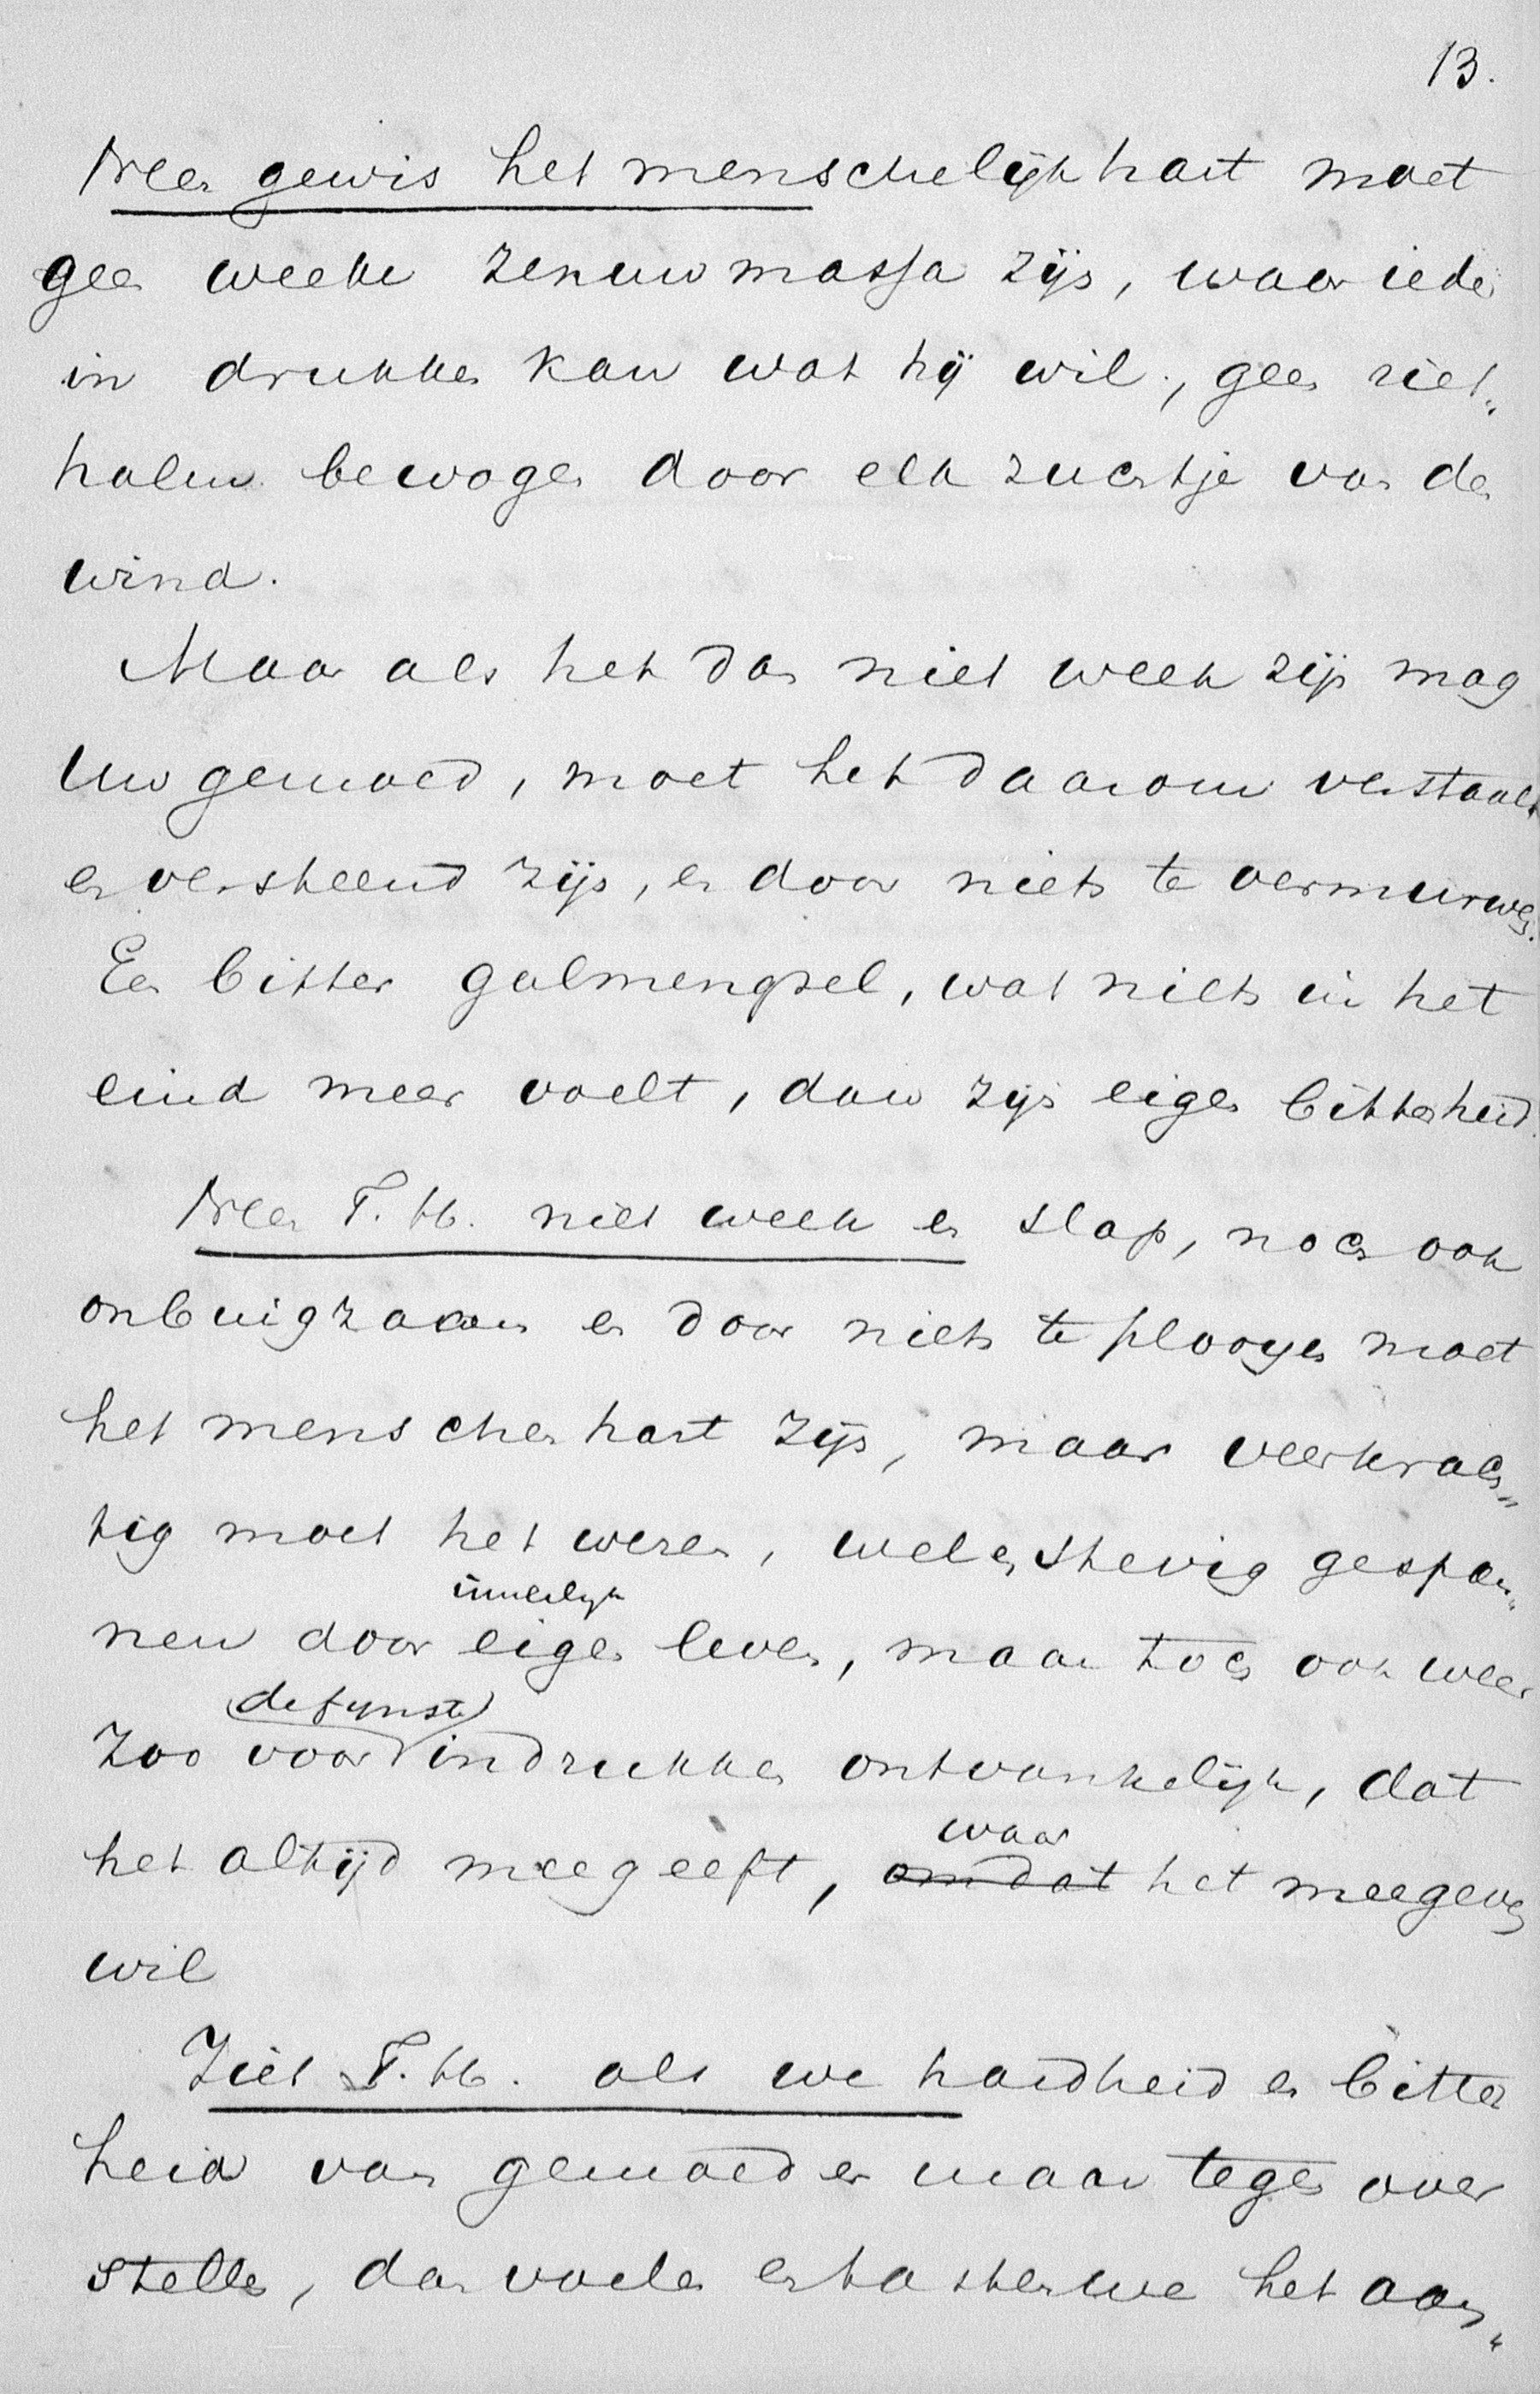 13.
Neen gewis het menschelijk hart moet
geen weeke zenuwmassa zijn, waar ieder
in drukken kan wat hij wil, geen riet„
halm bewogen door elk zuchtje van den
wind.
Maar als het dan niet week zijn mag
Uw gemoed, moet het daarom verstaald
en versteend zijn, en door niets te vermurwen.
Een bitter galmengsel, wat niets in het
eind meer voelt, dan zijn eigen bitterheid.
Neen T. H. niet week en slap, noch ook
onbuigzaam en door niets te plooyen moet
het menschenhart zijn, maar veerkrach„
tig moet het wezen, wel en stevig gespan„
innerlijk
nen door eigen leven, maar toch ook weer
de fijnste
zoo voor indrukken ontvankelijk, dat
waar
het altijd meegeeft, omdat het meegeven
wil
Ziet T. H. als we hardheid en bitter
heid van gemoed er maar tegen over
stellen, dan voelen en tasten we het aan„